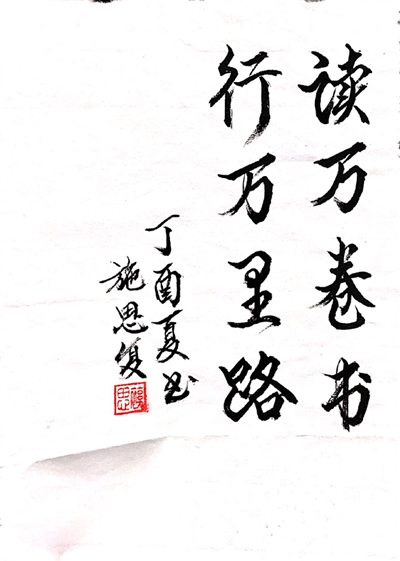 读万卷书
行万里路
丁酉夏书
施思复